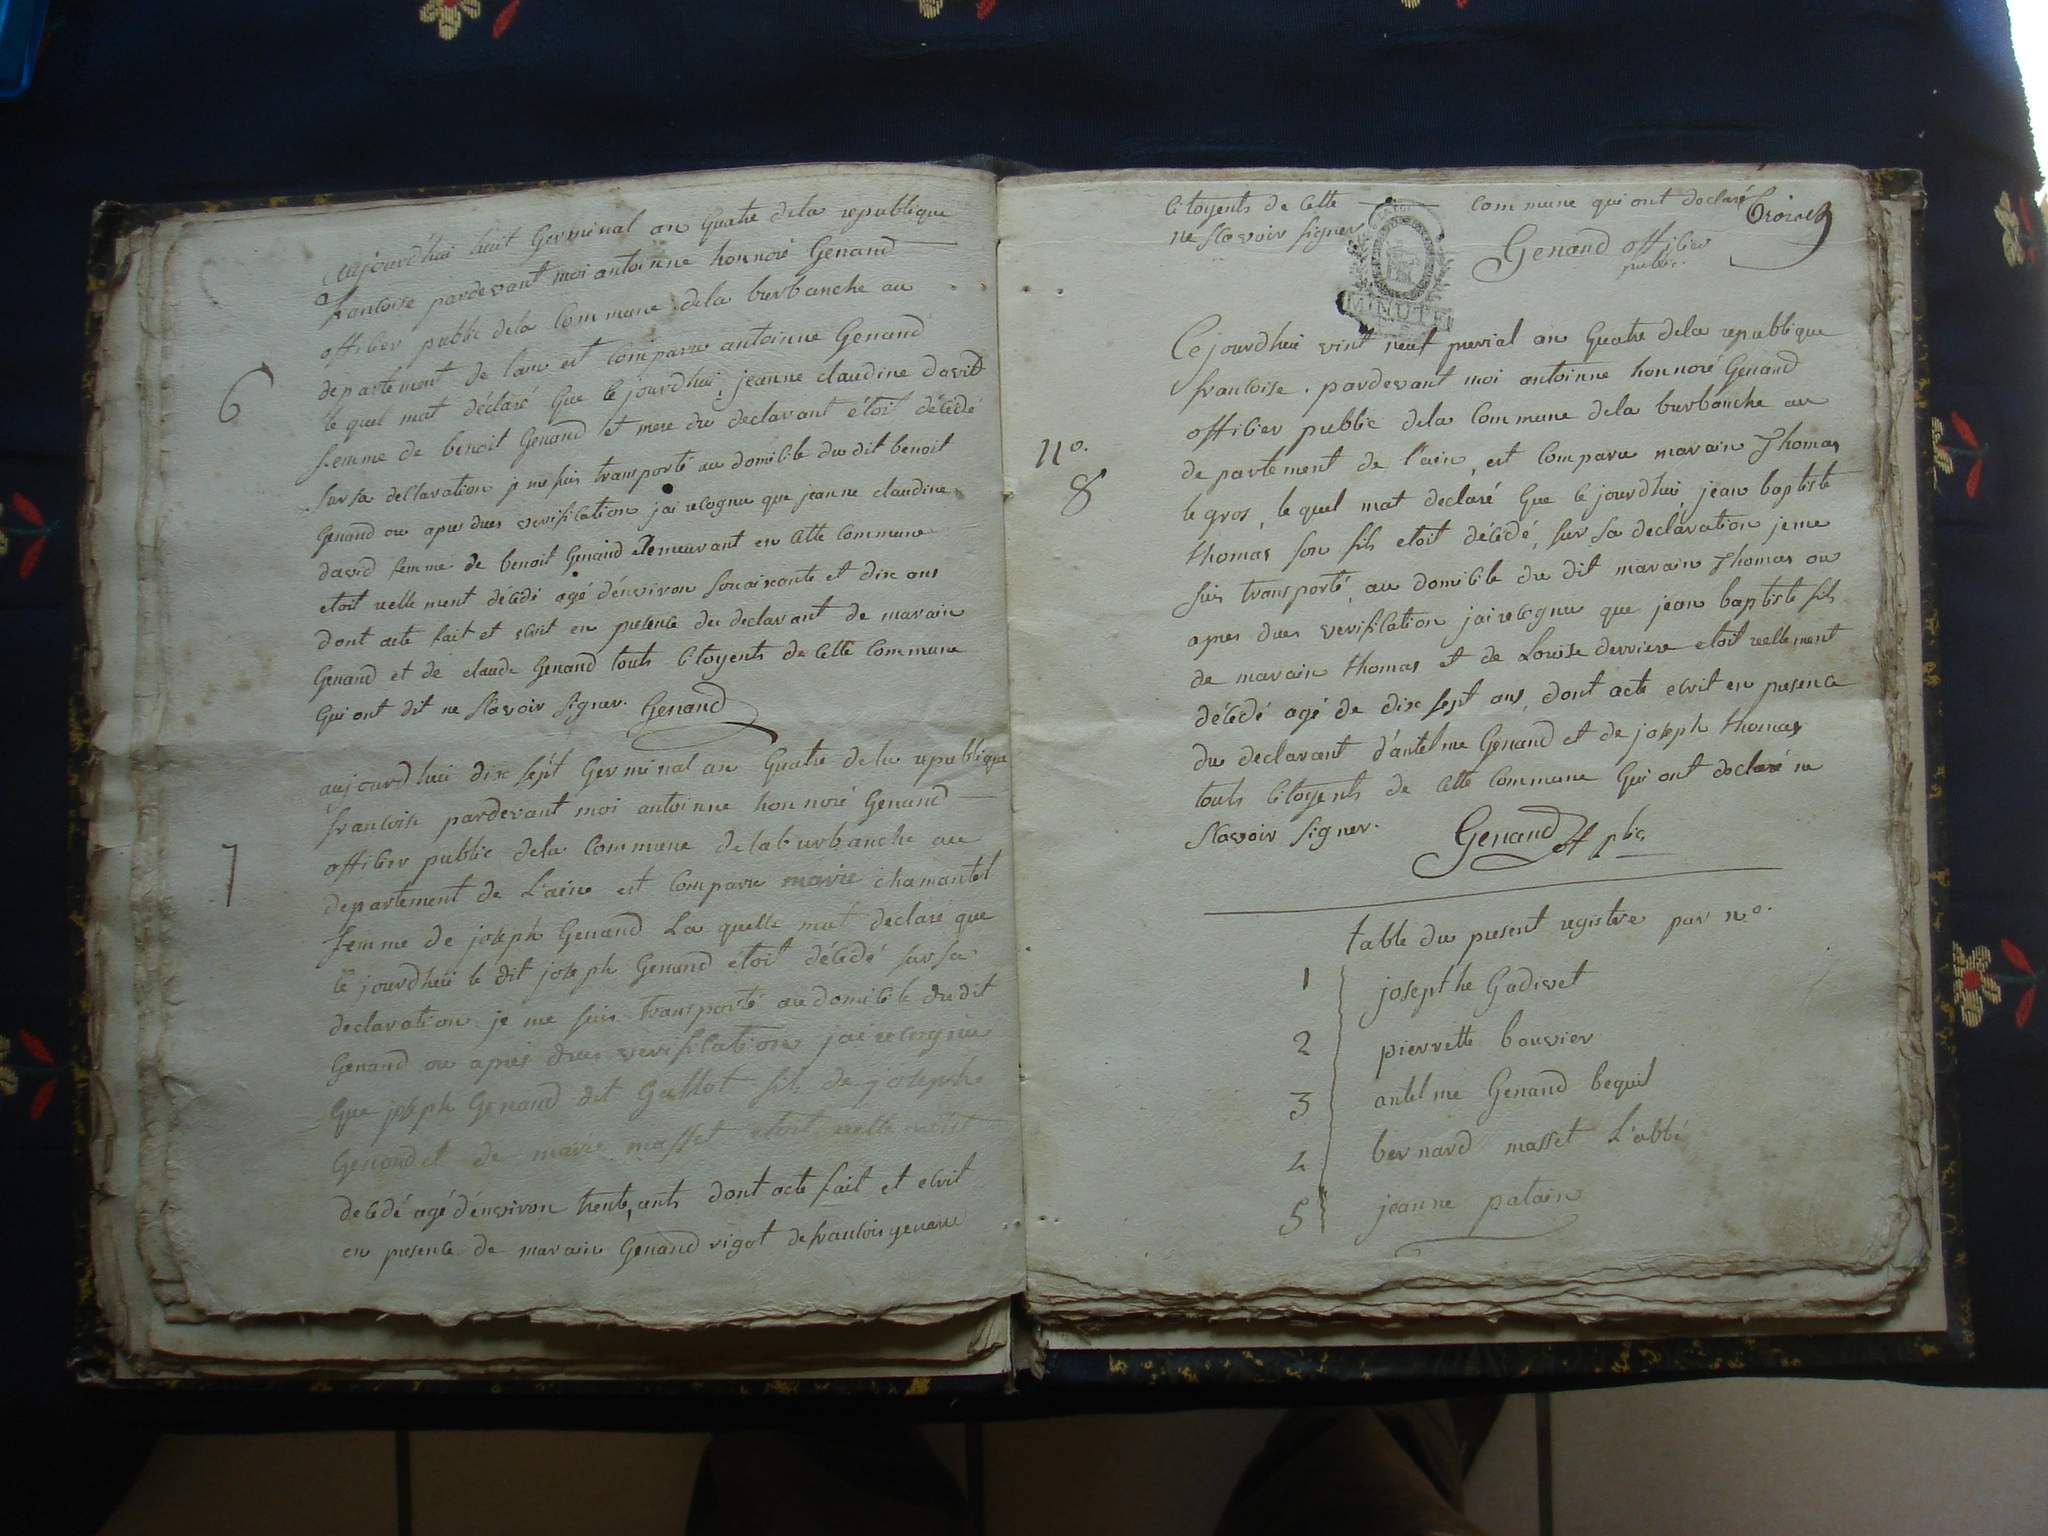 6
aujourd'hui huit Germinal an Quatre dela republique
francoise pardevant moi antoinne honnoré Genand
officier public dela Commune dela burbanche au
departement de lain est Comparu antoinne Genand
le quel mat déclaré Que ce jourdhui, jeanne claudine david
femme de benoit Genand et mere du declarant étoit décédé
sur sa declaration je me suis transporté au domicile du dit benoit
Genand ou apres dues verification jai recognu que jeanne claudine
david femme de benoit Genand demeurant en cette commune
etoit reellement décédé agé d'environ soixante et dix ans
dont acte fait et ecrit en presence du declarant de marain
Genand et de claude Genand touts citoyents de cette Commune
Qui ont dit ne scavoir signer. Genand
7
aujourdhui dix sept Germinal an Quatre dela republique
francoise pardevant moi antoinne honnoré Genand
officier public dela Commune delaburbanche au
departement de L'ain est Comparu marie chamantel
femme de joseph Genand La quelle mat declaré que
ce jourdhui le dit joseph Genand etoit décédé sur sa
declaration je me suis transporté au domicile du dit
Genand ou apres dues verification jai recognu
Que joseph Genand dit Gallot fils de joseph
Genand et de marie masset etoit reellement
decedé agé d'environ trente, ants dont acte fait et ecrit
en presence de marain Genand vigot de francois genand
citoyents de cette commune qui ont declaré
ne scavoir signer Genand officier
public.
MINUTE
Ce jourdhui vint neuf prerial an Quatre dela republique
francoise. pardevant moi antoinne honnoré Genand
officier public dela Commune dela burbanche au
departement de l'ain, est Comparu marain Thomas
no.
8
le gros, le quel mat declaré Que ce jourdhui, jean baptiste
thomas son fils etoit décédé, sur sa declaration je me
suis transporté, au domicile du dit marain Thomas ou
apres dues verification jai recognu que jean baptiste fils
de marain thomas et de Louise derriere etoit reellement
décédé agé de dix sept ans, dont acte ecrit en presence
du declarant d'antelme Genand et de joseph thomas
touts citoyents de cette Commune Qui ont declaré ne
scavoir signer. Genand off pbic
table du present registre par no.
1 josepthe Gadivet
2 pierrette bouvier
3 antelme Genand bequil
4 bernard masset L'abbé
5 jeanne patain